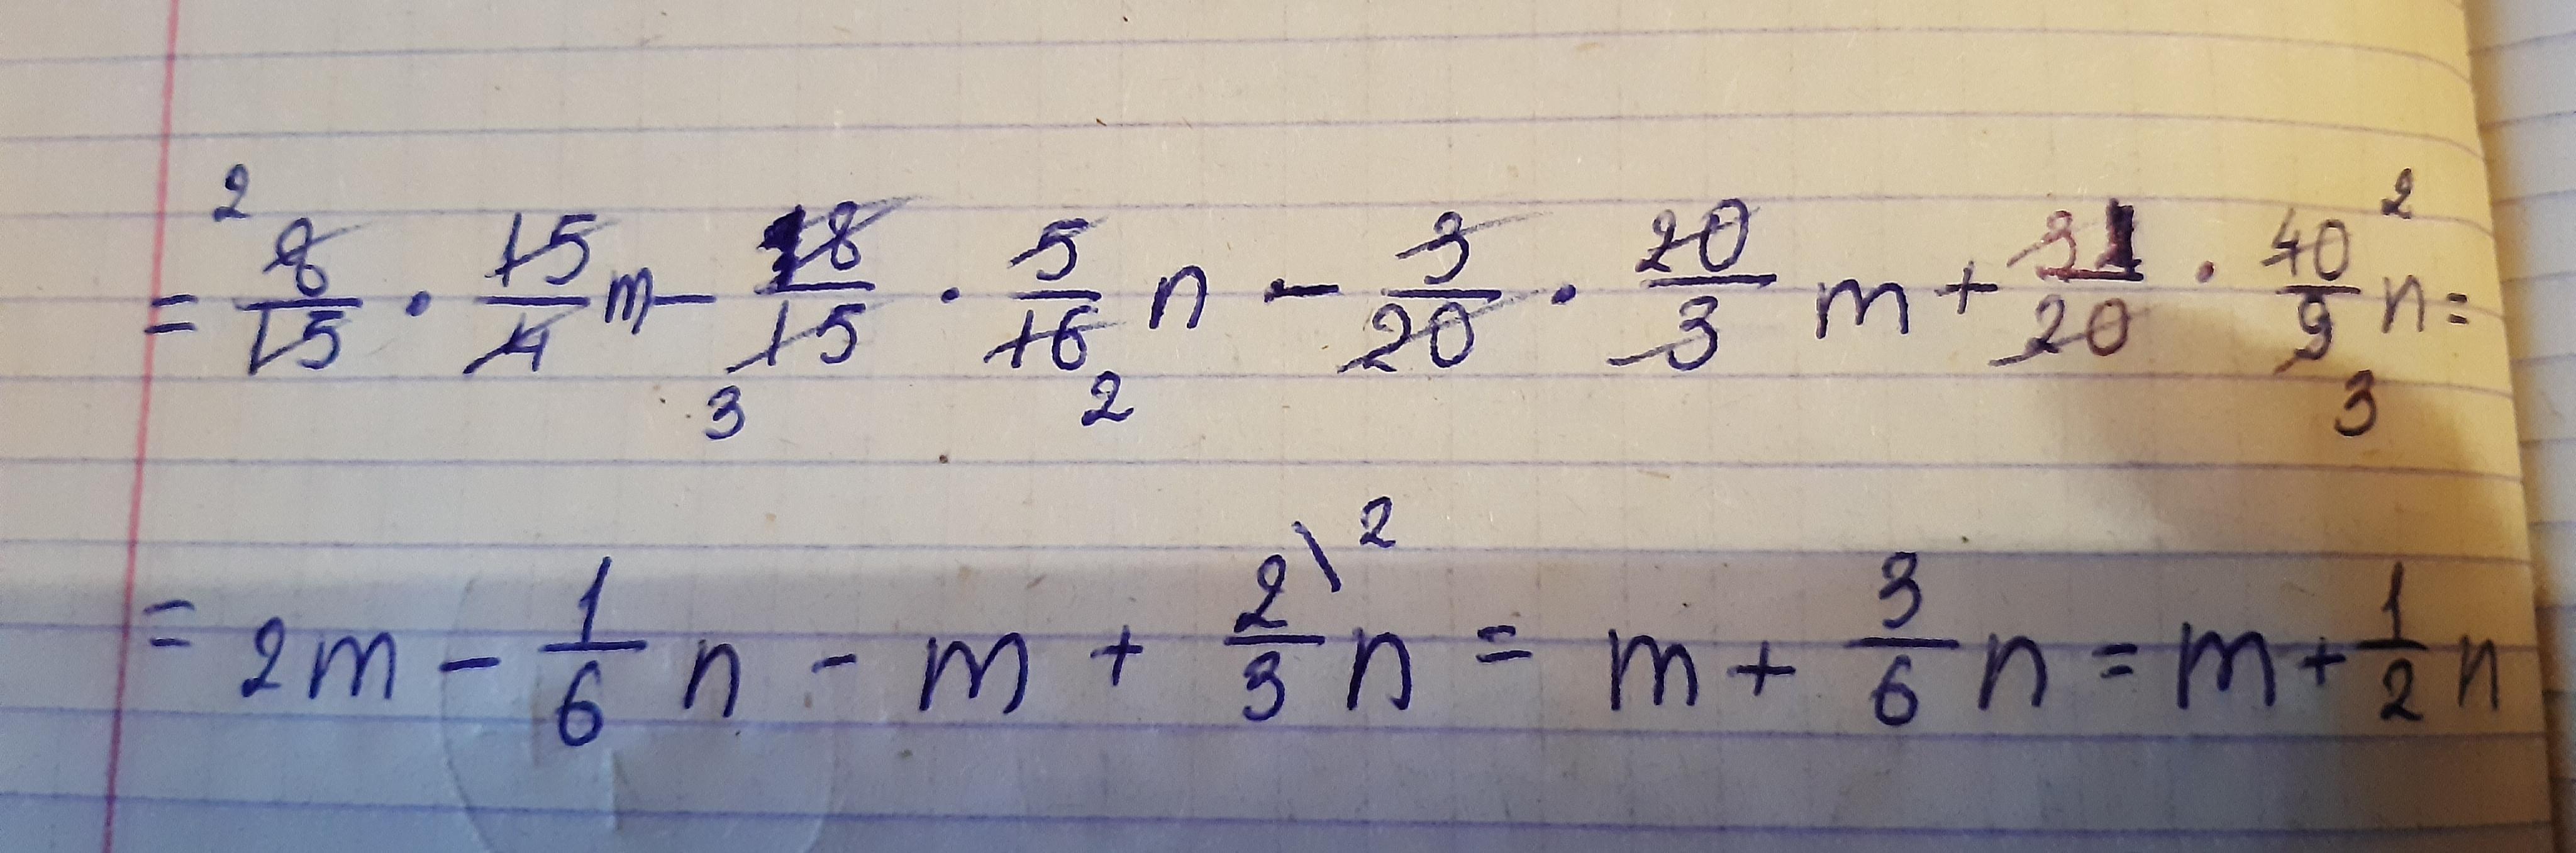 = ²8/15 · 15/4 m - 18/15₃ · 5/16₂ n - 3/20 · 20/3 m + 31/20 · 40²/9₃ n =
= 2m - 1/6 n - m + 2\²/3 n = m + 3/6 n = m + 1/2 n